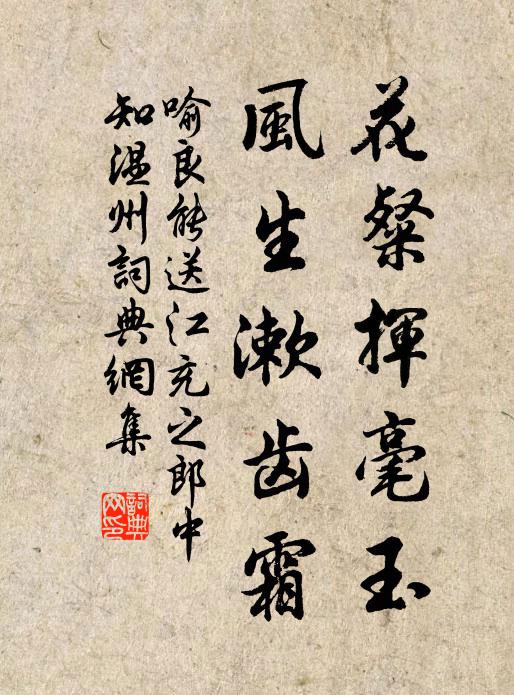 花粲揮毫玉
風生漱齿霜
喻良能送江充之郎中
知溫州詞典網集
詞典网印